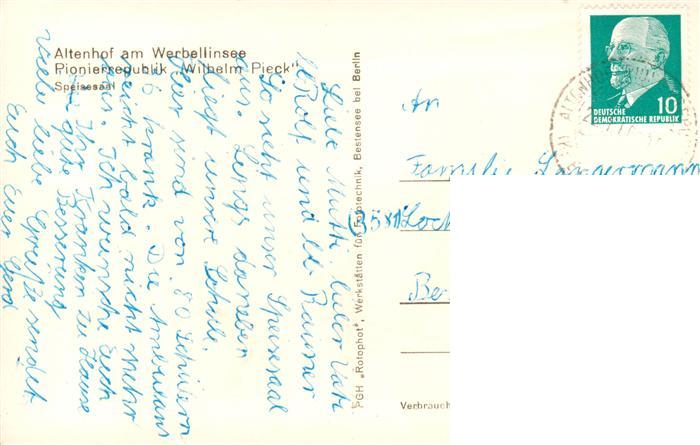 Altenhof am Werbellinsee
Pionierrepublik „Wilhelm Pieck"
Speisesaal
Liebe Mutti, lieber Vati
lb Rolf und lb Rainer
So sieht unser Speisesaal
aus. Lings daneben
liegt unsere Schule.
Hier sind von 80 Schülern
16 krank. Die Ambulans
reicht bald nicht mehr
aus. Ich wünsche Euch
Ihr Kranken zu Hause
gute Besserung
viele liebe Grüße sendet
Euch Euer Gerd
PGH „Rotophot", Werkstätten für Fototechnik, Bestensee bei Berlin
DEUTSCHE
DEMOKRATISCHE REPUBLIK
10
An
Familie
Verbrauch